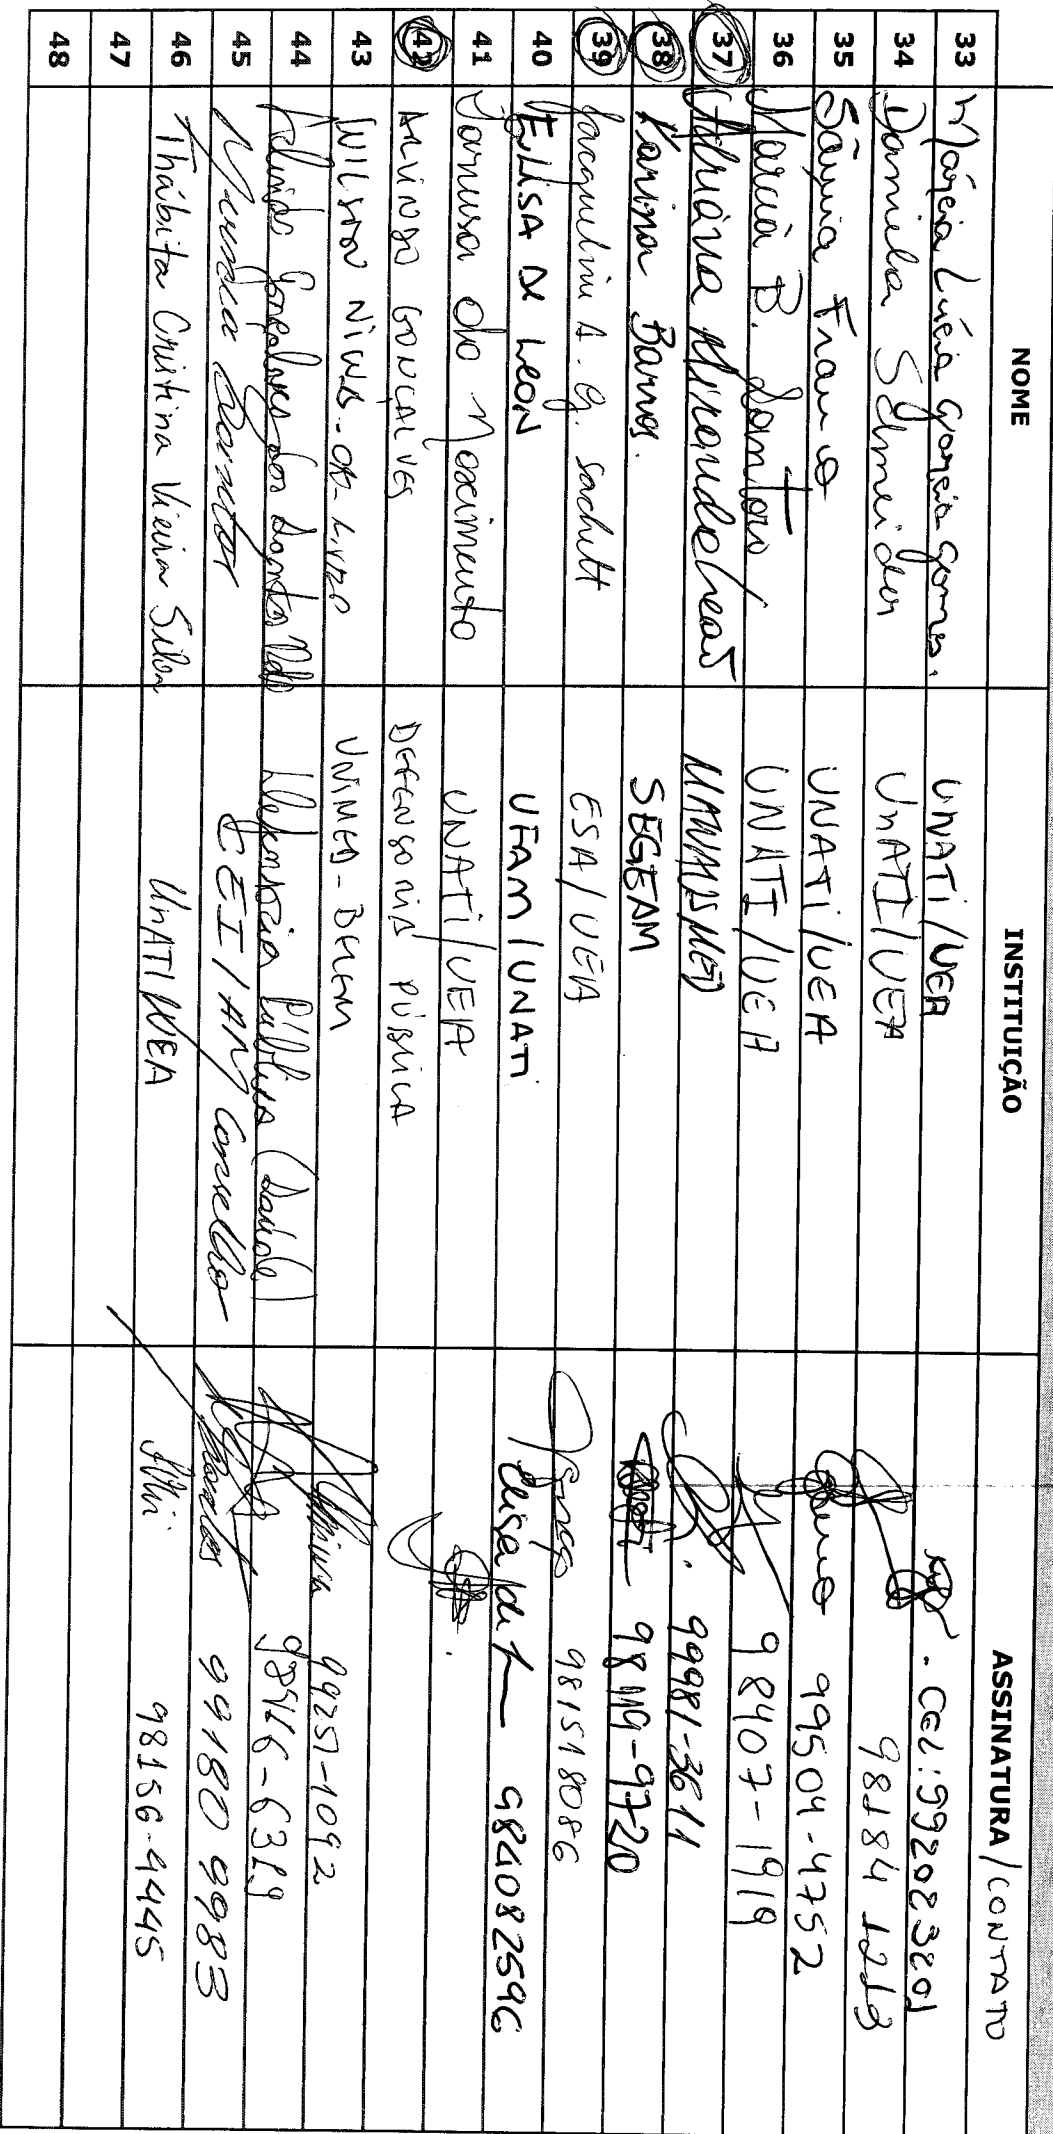 NOME INSTITUIÇÃO ASSINATURA / CONTATO
33 Márcia Lúcia Garcia Gomes. UNATI/UEA . CEL: 992023201
34 Daniela Schneider UnATI/UEA 98184 1213
35 Sâmia Franco UNATI/UEA 99504-4752
36 Marcia B. Santoro UNATI/UEA 98407-1919
37 Adriana Miranda Leão MANAUSMED 99981-3611
38 Karina Barros. SEGEAM 98119-9720
39 Jacqueline A. G. Sachett ESA/UEA 981518086
40 ELISA DE LEON UFAM/UNATI Elisa de L 984082596
41 Janusa do Nascimento UNATI/UEA
42 ALVINDO GONÇALVES DEFENSORIA PÚBLICA
43 WILSON UNIMED-BELEM 99251-1092
44 Gonçalves dos Santos Defensoria Pública (Saúde)
45 CEI/AM Conselho 99180 9983
46 Thábita Cristina Vieira Silva UnATI/UEA 98156-4445
47
48